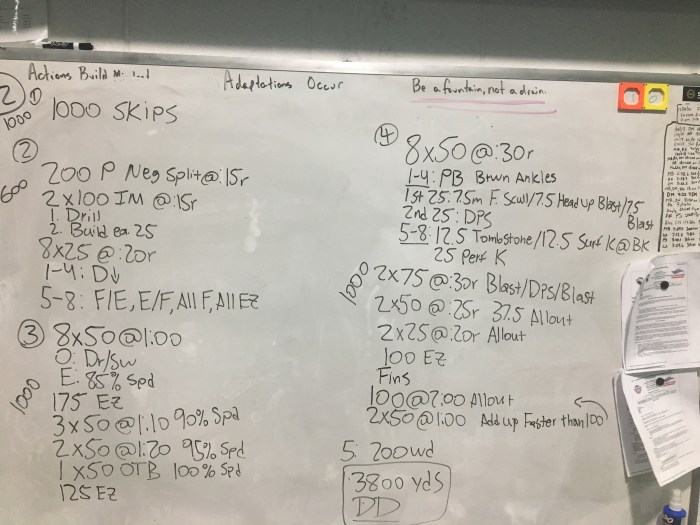 Actions Build
Adaptations Occur
Be a fountain, not a drain.
2
1000
①
1000 SKIPS
②
600
200 P Neg Split @:15r
2x100 IM @:15r
1. Drill
2. Build ea. 25
8x25 @:20r
1-4: D↓
5-8: F/E, E/F, All F, All EZ
③ 8x50@1:00
1000
O: Dr/Sw
E: 85% Spd
175 EZ
3x50@1:10 90% Spd
2x50@1:20 95% Spd
1x50 OTB 100% Spd
125 EZ
④
8x50@:30r
1-4: PB Btwn Ankles
1st 25: 7.5m F. Scull/7.5 Head up Blast/7.5 Blast
2nd 25: DPS
5-8: 12.5 Tombstone/12.5 Surf K@BK
25 Perf K
1000
2x75@:30r Blast/DPS/Blast
2x50@:25r 37.5 Allout
2x25@:20r Allout
100 EZ
Fins
100@2:00 Allout
2x50@1:00 Add up Faster than 100
5: 200wd
3800 yds
DD